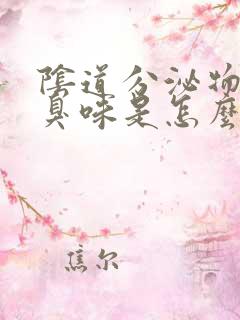 陰道分泌物
臭味是怎麼
焦尔